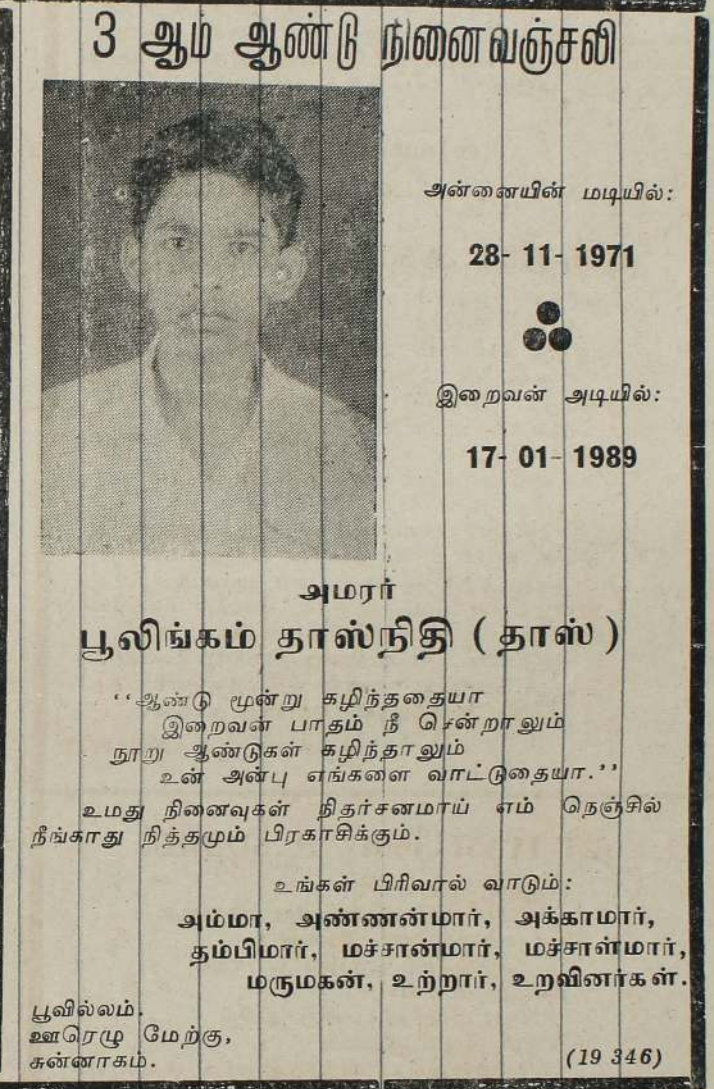 3 ஆம் ஆண்டு நினைவஞ்சலி
அன்னையின் மடியில்:
28- 11- 1971
இறைவன் அடியில்:
17- 01- 1989
அமரர்
பூலிங்கம் தாஸ்நிதி ( தாஸ் )
‘‘ஆண்டு மூன்று கழிந்ததையா
இறைவன் பாதம் நீ சென்றாலும்
நூறு ஆண்டுகள் கழிந்தாலும்
உன் அன்பு எங்களை வாட்டுதையா.’’
உமது நினைவுகள் நிதர்சனமாய் எம் நெஞ்சில்
நீங்காது நித்தமும் பிரகாசிக்கும்.
உங்கள் பிரிவால் வாடும்:
அம்மா, அண்ணன்மார், அக்காமார்,
தம்பிமார், மச்சான்மார், மச்சாள்மார்,
மருமகன், உற்றார், உறவினர்கள்.
பூவில்லம்.
ஊரெழு மேற்கு,
சுன்னாகம்.
(19 346)